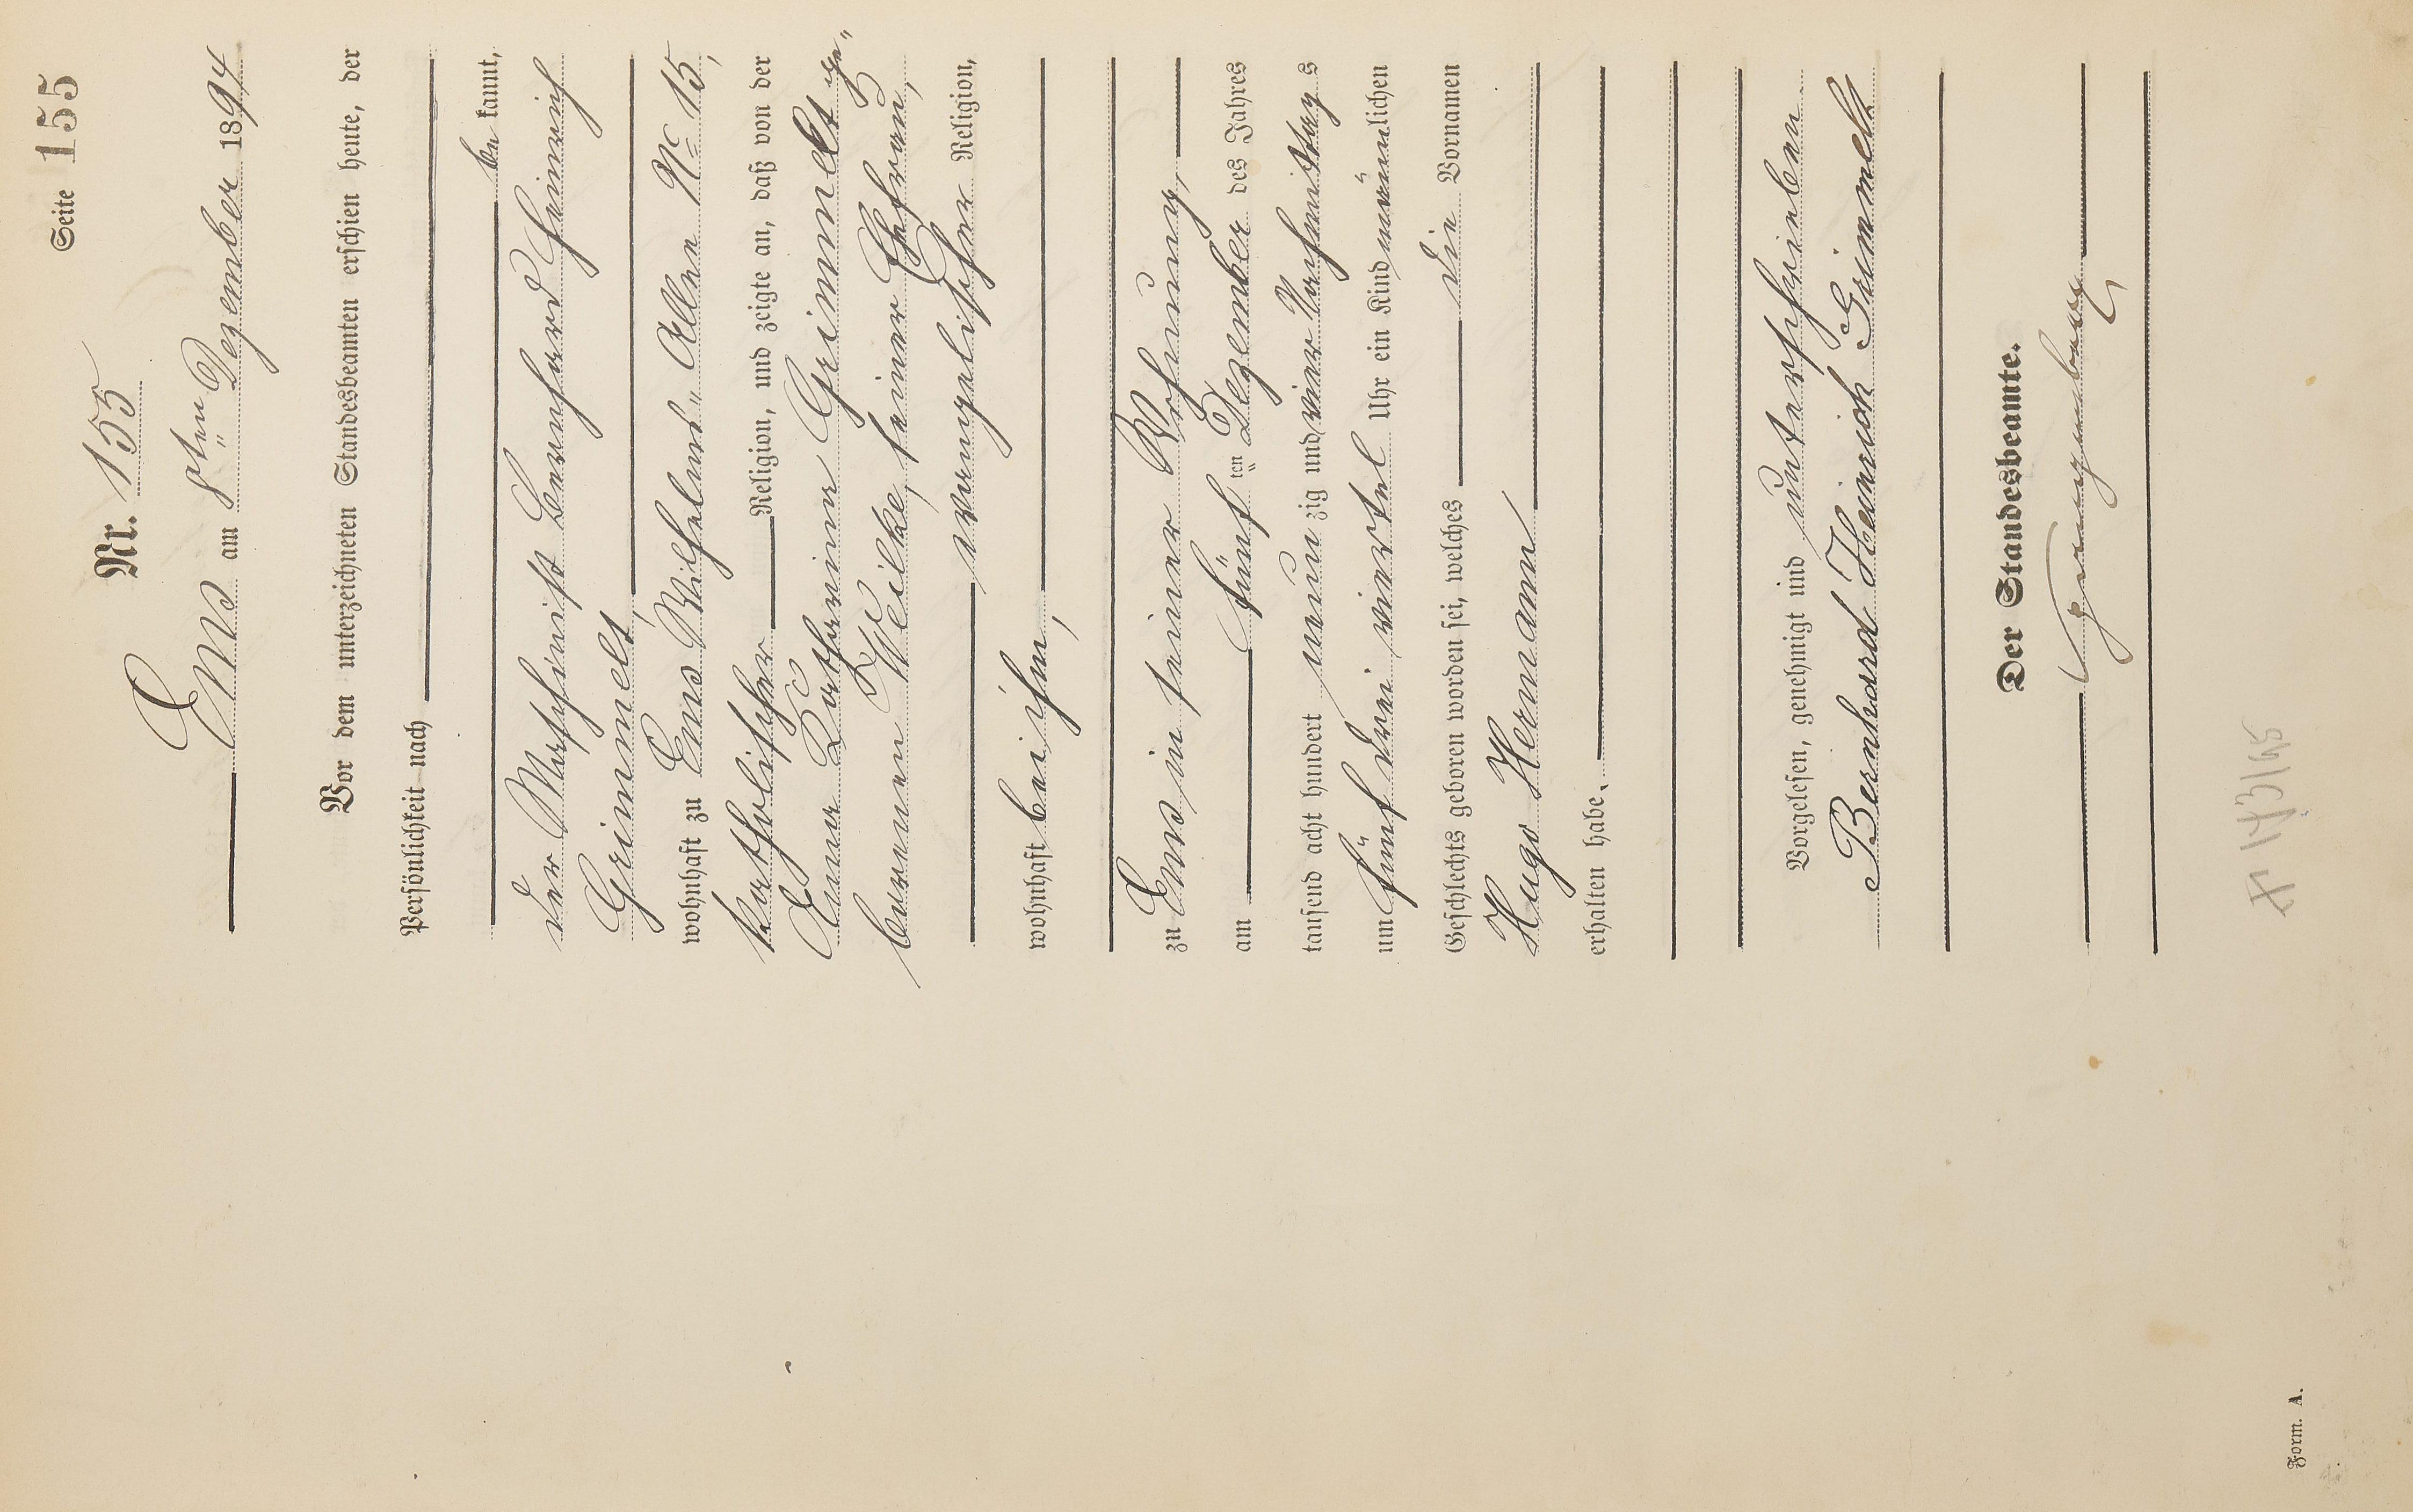 Seite 155
Nr. 155
Ems am 8ten Dezember 1894
Vor dem unterzeichneten Standesbeamten erschien heute, der
Persönlichkeit nach
be kannt,
der Maschinist Bernhard Heinrich
Grimmelt,
wohnhaft zu Ems Wilhelms-Allee No 15,
katholischer Religion, und zeigte an, daß von der
Anna Katharina Grimmelt ge-
borenen Weilke, seiner Ehefrau,
evangelischer Religion,
wohnhaft bei ihm,
zu Ems in seiner Wohnung,
am fünf ten Dezember des Jahres
tausend acht hundert neun zig und vier Nachmittag s
um fünf drei viertel Uhr ein Kind männlichen
Geschlechts geboren worden sei, welches die Vornamen
Hugo Hermann
erhalten habe.
Vorgelesen, genehmigt und unterschrieben
Bernhard Heinrich Grimmelt
Der Standesbeamte.
Form. A.